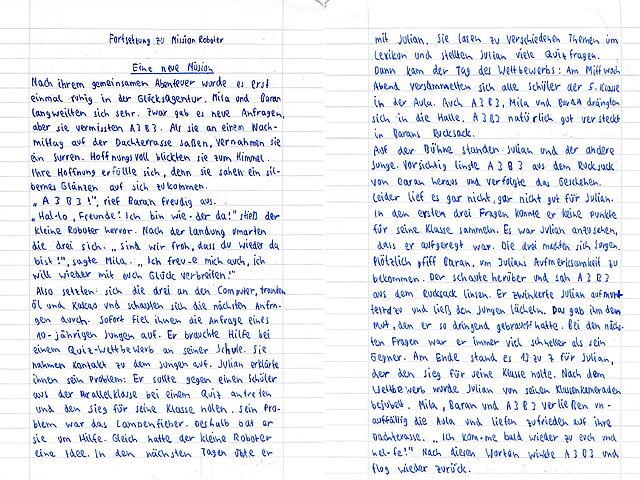 Fortsetzung zu Mission Roboter
Eine neue Mission
Nach ihrem gemeinsamen Abenteuer wurde es erst
einmal ruhig in der Glücksagentur. Mila und Baran
langweilten sich sehr. Zwar gab es neue Anfragen,
aber sie vermissten A3B3. Als sie an einem Nach-
mittag auf der Dachterrasse saßen, vernahmen sie
ein Surren. Hoffnungsvoll blickten sie zum Himmel.
Ihre Hoffnung erfüllte sich, denn sie sahen ein sil-
bernes Glänzen auf sich zukommen.
„A3B3!", rief Baran freudig aus.
„Hal-lo, Freunde! Ich bin wie-der da!" stieß der
kleine Roboter hervor. Nach der Landung umarmten
die drei sich. „Sind wir froh, dass du wieder da
bist!", sagte Mila. „Ich freu-e mich auch, ich
will wieder mit euch Glück verbreiten!"
Also setzten sich die drei an den Computer, tranken
Öl und Kakao und schauten sich die nächsten Anfra-
gen durch. Sofort fiel ihnen die Anfrage eines
10-jährigen Jungen auf. Er brauchte Hilfe bei
einem Quiz-Wettbewerb an seiner Schule. Sie
nahmen Kontakt zu dem Jungen auf. Julian erklärte
ihnen sein Problem: Er sollte gegen einen Schüler
aus der Parallelklasse bei einem Quiz antreten
und den Sieg für seine Klasse holen. Sein Pro-
blem war das Lampenfieber. Deshalb bat er
sie um Hilfe. Gleich hatte der kleine Roboter
eine Idee. In den nächsten Tagen übte er
mit Julian. Sie lasen zu verschiedenen Themen im
Lexikon und stellten Julian viele Quizfragen.
Dann kam der Tag des Wettbewerbs: Am Mittwoch
Abend versammelten sich alle Schüler der 5. Klasse
in der Aula. Auch A3B3, Mila und Baran drängten
sich in die Halle. A3B3 natürlich gut versteckt
in Barans Rucksack.
Auf der Bühne standen Julian und der andere
Junge. Vorsichtig linste A3B3 aus dem Rucksack
von Baran heraus und verfolgte das Geschehen.
Leider lief es gar nicht, gar nicht gut für Julian.
In den ersten drei Fragen konnte er keine Punkte
für seine Klasse sammeln. Es war Julian anzusehen,
dass er aufgeregt war. Die drei machten sich Sorgen.
Plötzlich pfiff Baran, um Julians Aufmerksamkeit zu
bekommen. Der schaute herüber und sah A3B3
aus dem Rucksack linsen. Er zwinkerte Julian aufmun-
ternd zu und ließ den Jungen lächeln. Das gab ihm den
Mut, den er so dringend gebraucht hatte. Bei den näch-
sten Fragen war er immer viel schneller als sein
Gegner. Am Ende stand es 12 zu 7 für Julian,
der den Sieg für seine Klasse holte. Nach dem
Wettbewerb wurde Julian von seinen Klassenkameraden
bejubelt. Mila, Baran und A3B3 verließen un-
auffällig die Aula und liefen zufrieden auf ihre
Dachterasse. „Ich kom-me bald wieder zu euch und
hel-fe!" Nach diesen Worten winkte A3B3 und
flog wieder zurück.